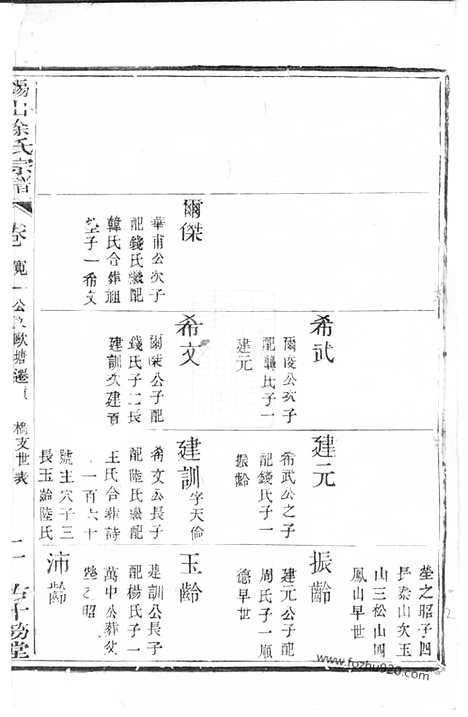 塋之昭子四
長泰山次玉
山三松山四
鳳山早世
希武
爾俊公次子
配龔氏子一
建元
建元
希武公之子
配錢氏子一
振齡
振齡
建元公子配
周氏子一順
德早世
爾傑
華甫公次子
配錢氏繼配
韓氏合葬祖
塋子一希文
希文
爾傑公子配
錢氏子二長
建訓次建
建訓字天倫
希文公長子
配陸氏繼配
王氏合葬詩
一百六十
號主穴子三
長玉齡陸氏
玉齡
建訓公長子
配楊氏子一
萬中公葬父
塋之昭
沛齡
湯山徐氏宗譜
卷 寬一公 歐塘遷 橋支世表 二
www.fozhu920.com